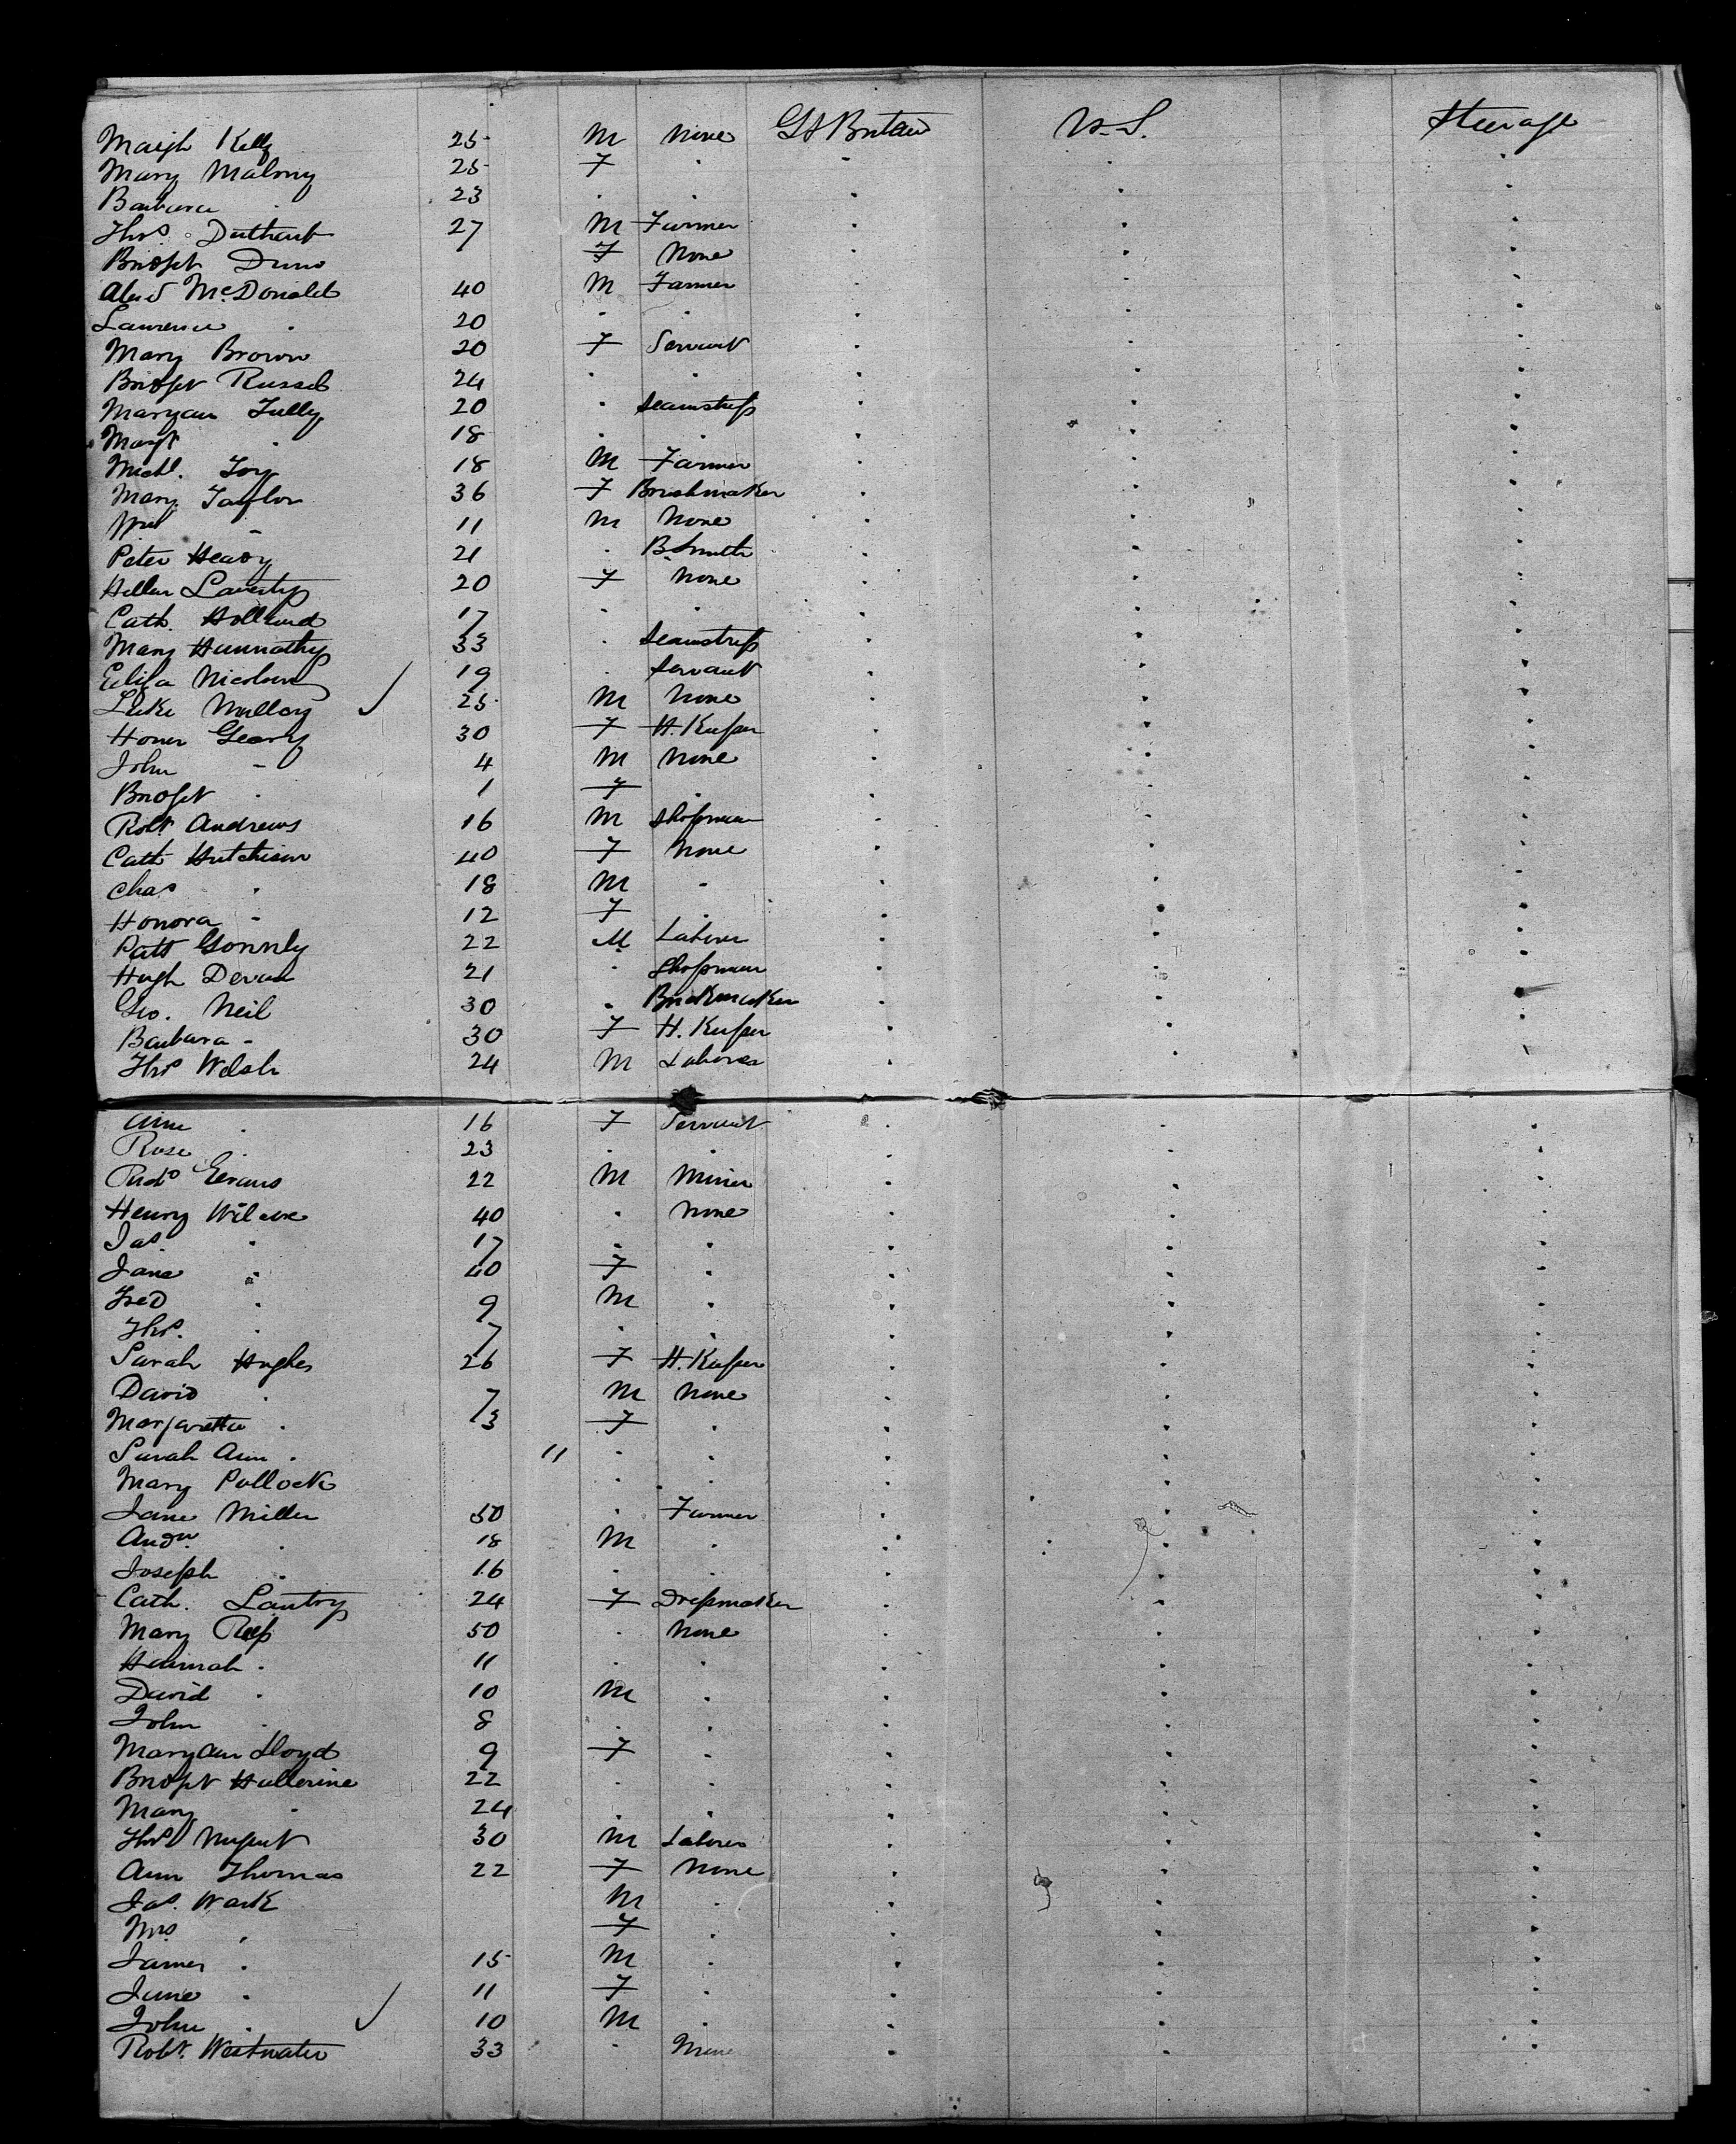 Kelly 25 M None Gt Britain U.S. Steerage
Mary Malony 25 F
Barbara 23
Thos 27 M Farmer
Bridget F None
Alexd McDonald 40 M Farmer
Laurence 20
Mary Brown 20 F Servant
Bridget Russel 24
Maryan Tully 20 Seamstress
Margt 18
Michl. 18 M Farmer
Mary Taylor 36 F Brushmaker
Wm 11 M None
Peter Heavy 21 B.Smith
Laverty 20 F None
Cath. Holland 17
Mary 33 Seamstress
Eliza 19 Servant
Luke Mulloy 25 M None
Honer Geary 30 F H. Keeper
John 4 M None
Bridget 1 F
Robt Andrews 16 M Shopman
Cath Hutchison 40 F None
Chas 18 M
Honora 12 F
Patt Gormly 22 M Laborer
Hugh 21 Shopman
Geo. Neil 30 Brickmaker
Barbara 30 F H. Keeper
Thos Welsh 24 M Laborer
Ann 16 F Servant
Rose 23
Richd Evans 22 M Miner
Henry Wilcox 40 None
Jas 17
Jane 40 F
Fred 9 M
Thos. 7
Sarah Hughes 26 F H. Keeper
David 7 M None
Margaretta 3 F
Sarah Ann 11
Mary Pollock
Jane Miller 50 Farmer
Andw 18 M
Joseph 16
Cath. Lantry 24 F Dressmaker
Mary Rees 50 None
Hannah 11
David 10 M
John 8
Maryann Lloyd 9 F
Bridget Hallerine 22
Mary 24
Thos Nugent 30 M Laborer
Ann Thomas 22 F None
Jas. Wark M
Mrs F
James 15 M
Jane 11 F
John 10 M
Robt. Westwater 33